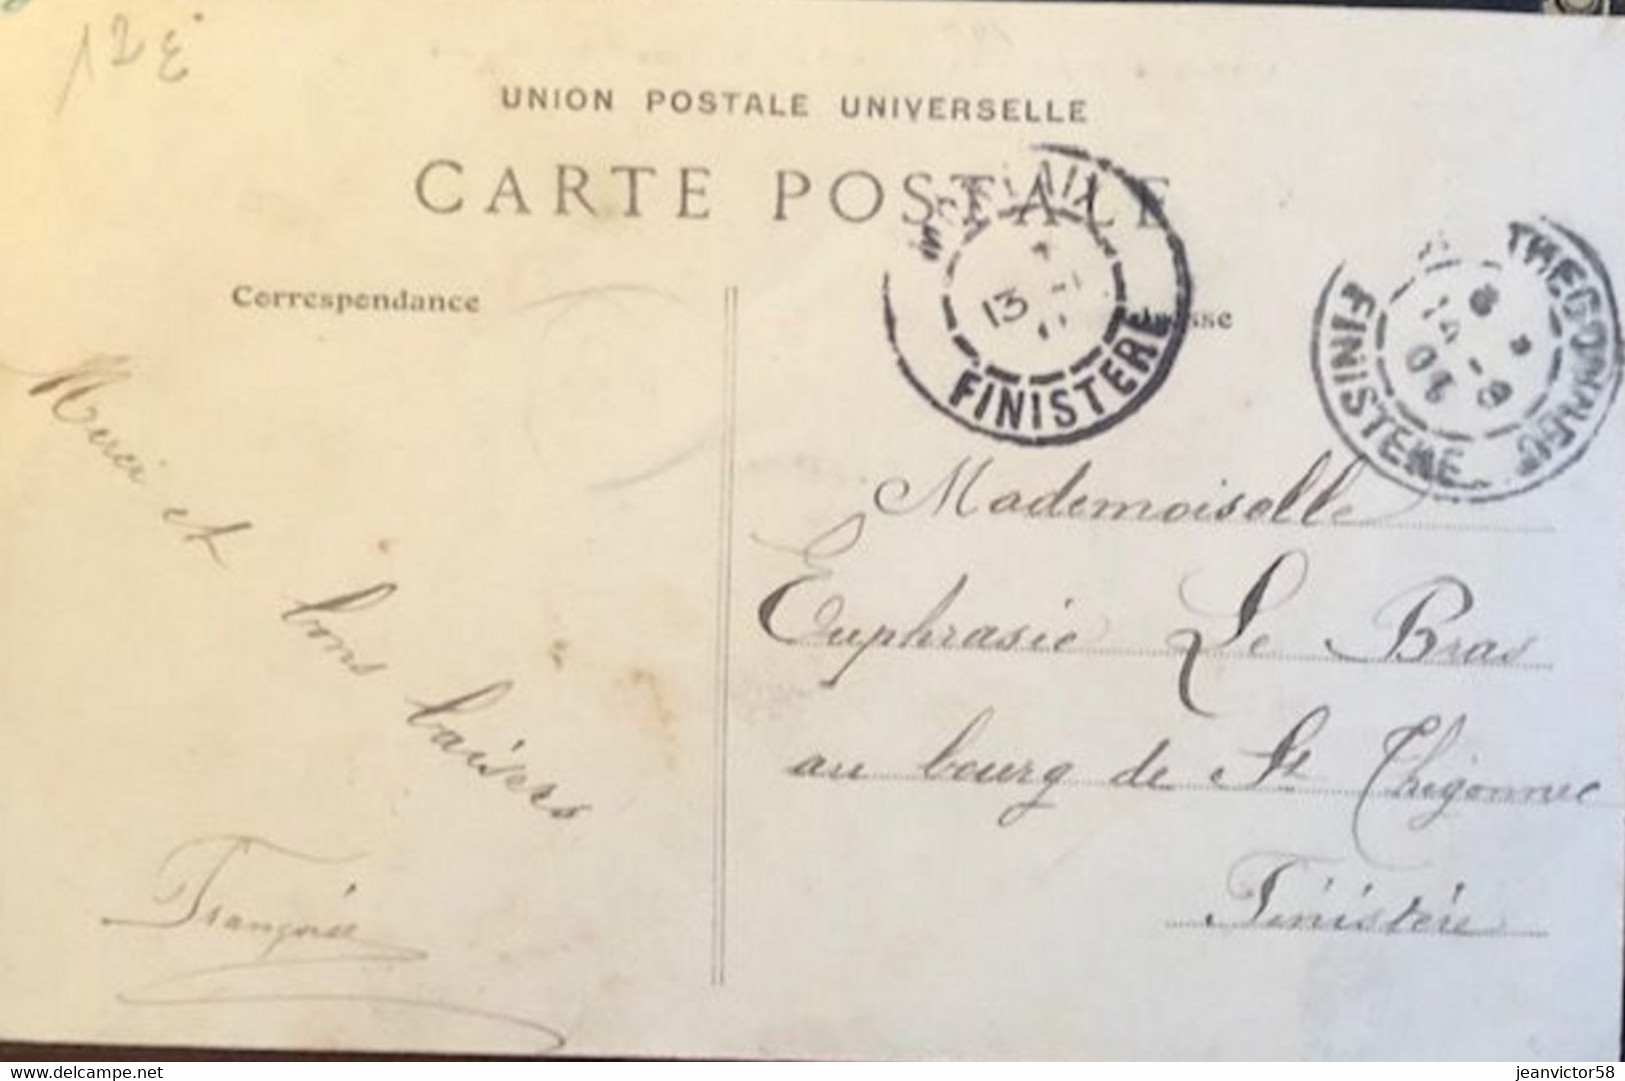 12€
UNION POSTALE UNIVERSELLE
CARTE POSTALE
Correspondance
FINISTERE
13
THEGONNEC
FINISTERE
14
Merci et bons baisers
Françoise
Mademoiselle
Euphrasie Le Bras
au bourg de St Thégonnec
Finistère
jeanvictor58